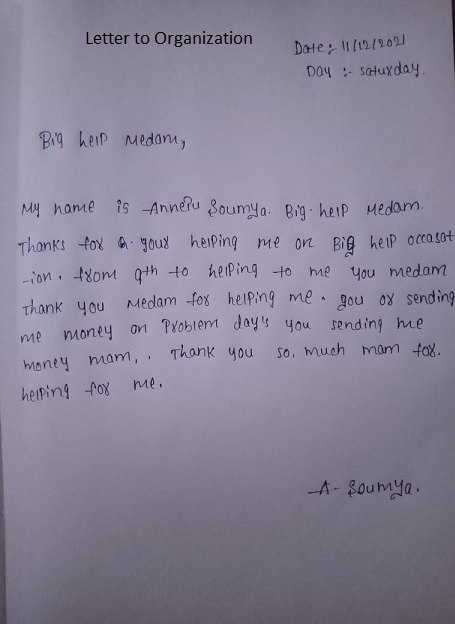 Letter to Organization
Date:- 11/12/2021
Day :- saturday.
Big help Medam,
My name is Anneru Soumya. Big help Medam.
Thanks for your helping me on Big help occasat
-ion. from 9th to helping to me you medam
Thank you Medam for helping me. you or sending
me money on Problem day's you sending me
money mam,. Thank you so. much mam for.
helping for me.
A- Soumya.